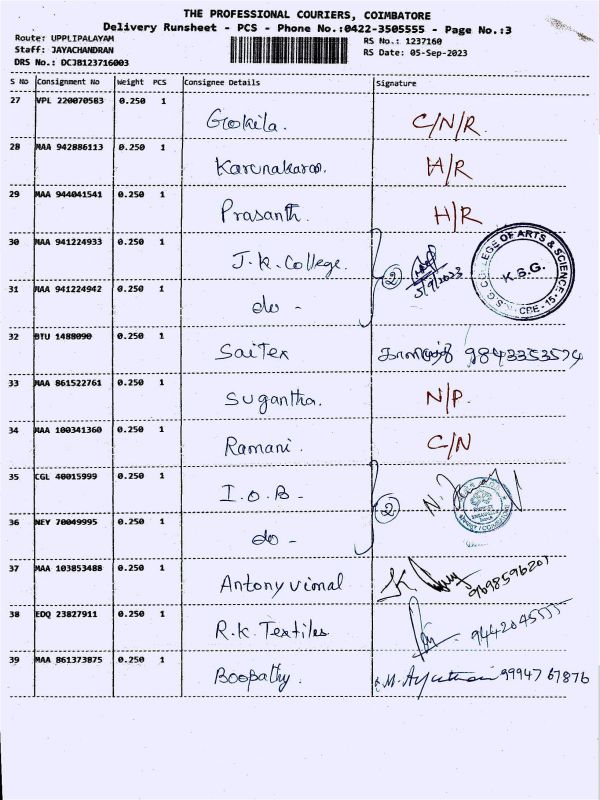 THE PROFESSIONAL COURIERS, COIMBATORE
Delivery Runsheet - PCS - Phone No.:0422-3505555 - Page No.:3
Route: UPPLIPALAYAM
RS No.: 1237160
Staff: JAYACHANDRAN
RS Date: 05-Sep-2023
DRS No.: DCJB123716003
S No Consignment No Weight PCS Consignee Details Signature
27 VPL 220070583 0.250 1
Gokila. C/N/R
28 MAA 942886113 0.250 1
Karunakaran. H/R
29 MAA 944041541 0.250 1
Prasanth. H/R
30 MAA 941224933 0.250 1
J.K. College. 2 5/9/2023
K.S.G. COLLEGE OF ARTS & SCIENCE CBE-15
K.S.G.
31 MAA 941224942 0.250 1
do -
32 BTU 1488090 0.250 1
Saitex 9843353574
33 MAA 861522761 0.250 1
Sugantha. N/P.
34 MAA 100341360 0.250 1
Ramani. C/N
35 CGL 40015999 0.250 1
I.O.B - 2
36 NEY 70049995 0.250 1
do -
37 MAA 103853488 0.250 1
Antony vimal 9698596201
38 EDQ 23827911 0.250 1
R.K. Textiles 9442045555
39 MAA 861373875 0.250 1
Boopathy. 99947 67876